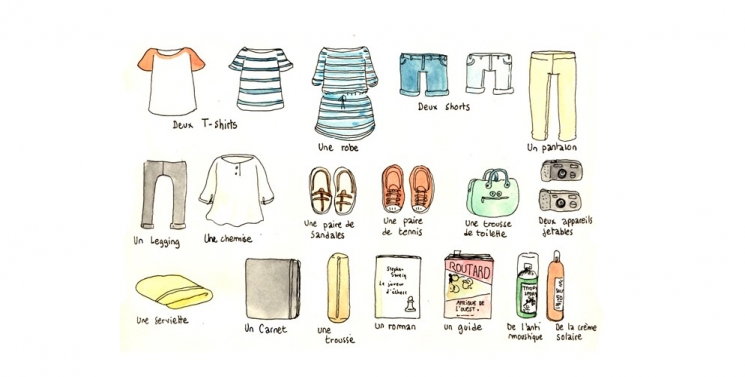 Deux T-shirts
Une robe
Deux shorts
Un pantalon
Un Legging
Une chemise
Une paire de
Sandales
Une paire
de tennis
Une trousse
de toilette
Deux appareils
jetables
Une serviette
Un Carnet
une
trousse
Stephan
Zweig
Le joueur
d'échecs
un roman
ROUTARD
AFRIQUE DE
L'OUEST.
un guide
De l'anti
moustique
De la crème
solaire